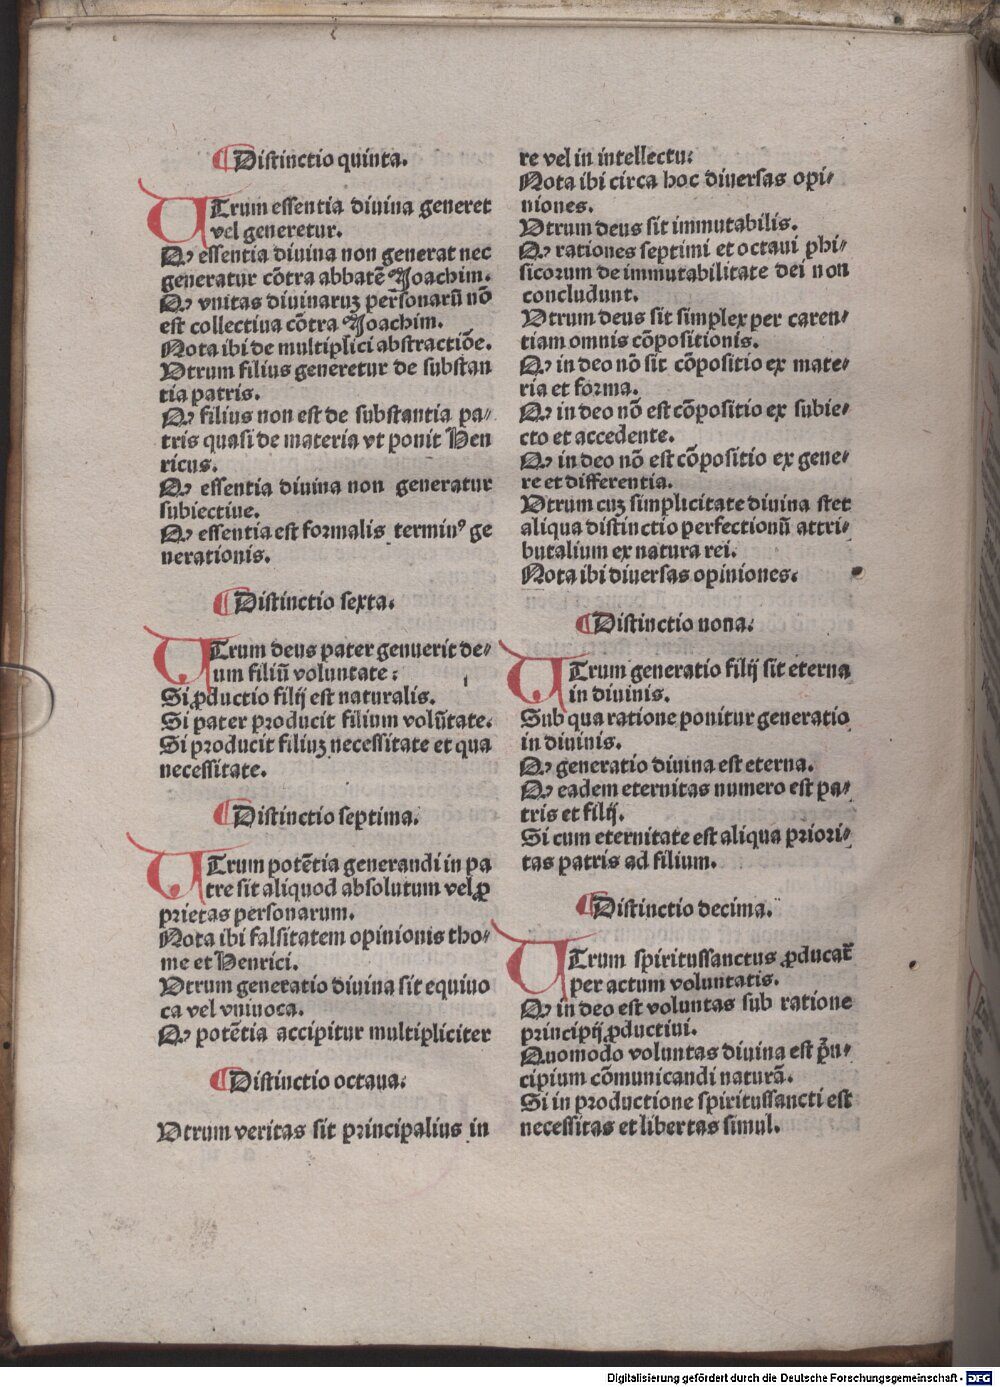 ¶Distinctio quinta.
UTrum essentia diuina generet
vel generetur.
Qꝙ essentia diuina non generat nec
generatur cōtra abbatē Joachim.
Qꝙ vnitas diuinaruꝫ personarū nō
est collectiua cōtra Joachim.
Nota ibi de multiplici abstractiōe.
Vtrum filius generetur de substan
tia patris.
Qꝙ filius non est de substantia pa⸗
tris quasi de materia vt ponit Hen
ricus.
Qꝙ essentia diuina non generatur
subiectiue.
Qꝙ essentia est formalis terminꝰ ge
nerationis.
¶Distinctio sexta.
UTrum deus pater genuerit de⸗
um filiū voluntate:
Si ꝓductio filij est naturalis.
Si pater producit filium volūtate.
Si producit filiuꝫ necessitate et qua
necessitate.
¶Distinctio septima.
UTrum potētia generandi in pa
tre sit aliquod absolutum vel ꝓ
prietas personarum.
Nota ibi falsitatem opinionis tho⸗
me et Henrici.
Vtrum generatio diuina sit equiuo
ca vel vniuoca.
Qꝙ potētia accipitur multipliciter
¶Distinctio octaua.
Vtrum veritas sit principalius in
re vel in intellectu:
Nota ibi circa hoc diuersas opi⸗
niones.
Vtrum deus sit immutabilis.
Qꝙ rationes septimi et octaui phi⸗
sicorum de immutabilitate dei non
concludunt.
Vtrum deus sit simplex per caren⸗
tiam omnis cōpositionis.
Qꝙ in deo nō sit cōpositio ex mate⸗
ria et forma.
Qꝙ in deo nō est cōpositio ex subie⸗
cto et accedente.
Qꝙ in deo nō est cōpositio ex gene⸗
re et differentia.
Vtrum cuꝫ simplicitate diuina stet
aliqua distinctio perfectionū attri⸗
butalium ex natura rei.
Nota ibi diuersas opiniones.
¶Distinctio nona.
UTrum generatio filij sit eterna
in diuinis.
Sub qua ratione ponitur generatio
in diuinis.
Qꝙ generatio diuina est eterna.
Qꝙ eadem eternitas numero est pa⸗
tris et filij.
Si cum eternitate est aliqua priori⸗
tas patris ad filium.
¶Distinctio decima.
UTrum spiritussanctus ꝓducat᷑
per actum voluntatis.
Qꝙ in deo est voluntas sub ratione
principij ꝓductiui.
Quomodo voluntas diuina est p̄n⸗
cipium cōmunicandi naturā.
Si in productione spiritussancti est
necessitas et libertas simul.
Digitalisierung gefördert durch die Deutsche Forschungsgemeinschaft - DFG